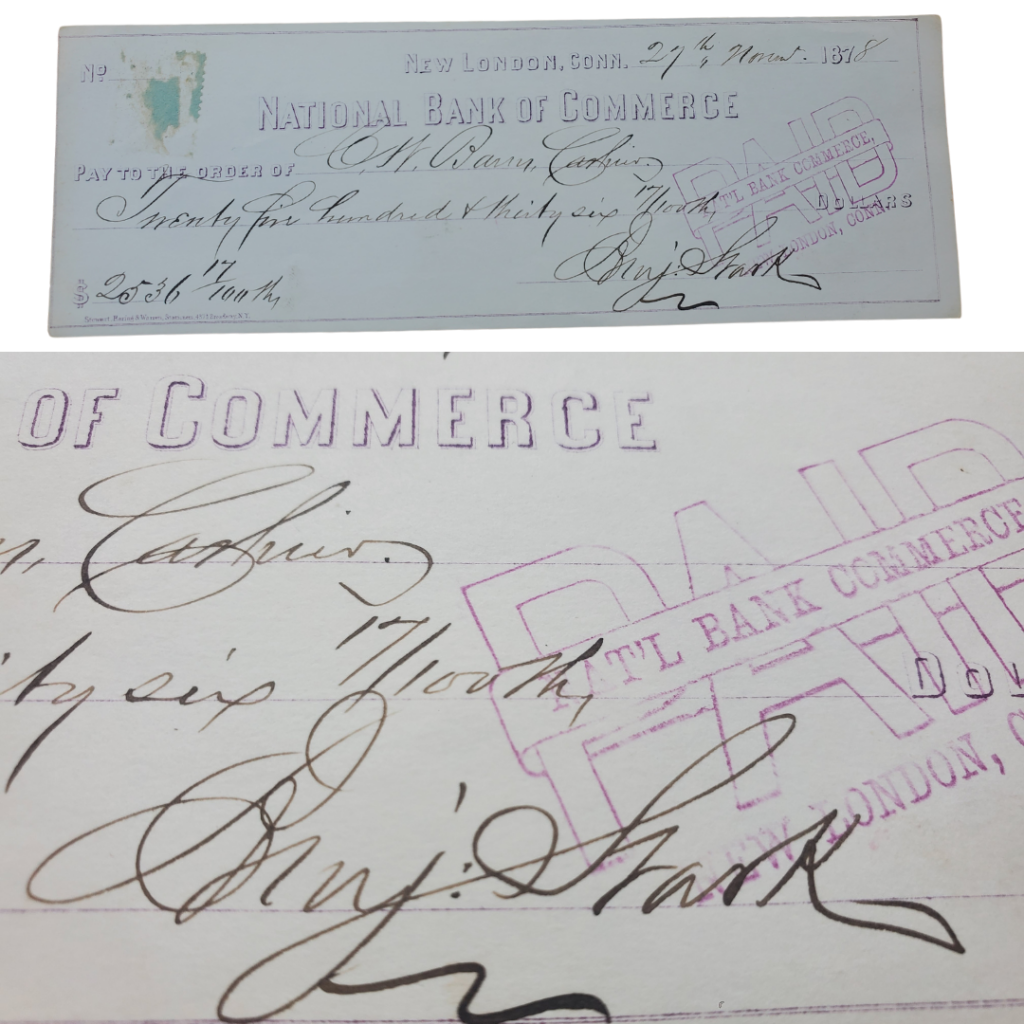 Nº
NEW LONDON, CONN. 27th, Novr. 1878
NATIONAL BANK OF COMMERCE
PAY TO THE ORDER OF C. W. Barns, Cashier.
Twenty five hundred & thirty six 17/100ths, DOLLARS
PAID
NAT'L BANK COMMERCE,
PAID
NEW LONDON, CONN.
Benj. Stark
$ 2536 17/100ths
OF COMMERCE
Cashier.
ty six 17/100ths,
PAID
NAT'L BANK COMMERCE
PAID
DOL
NEW LONDON, C
Benj. Stark